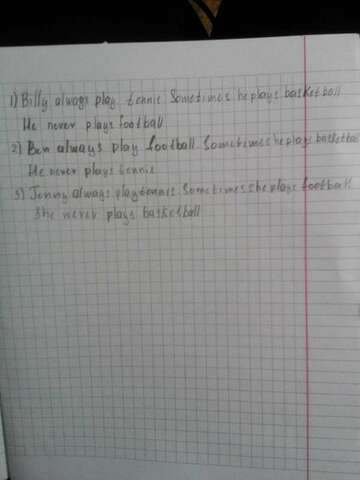 1) Billy always play tennis. Sometimes he plays basketball
He never plays football
2) Ben always play football. Sometimes she plays basketball
He never plays tennis
3) Jenny always play tennis. Sometimes she plays football
She never plays basketball